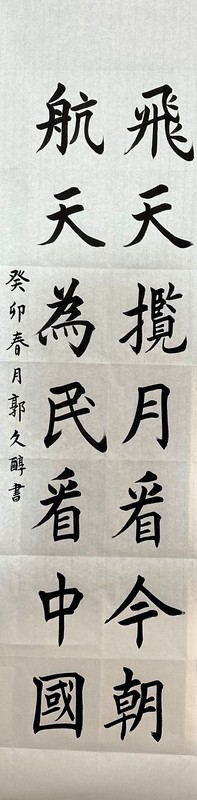 飛天攬月看今朝
航天為民看中國
癸卯春月郭久醇書